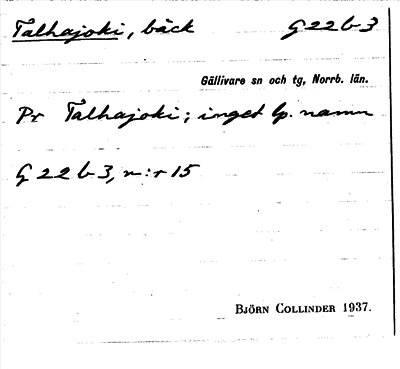 Talhajoki, bäck G 22 b 3
Gällivare sn och tg, Norrb. län.
Pr Talhajoki; inget lp. namn
G 22 b 3, n:r 15
BJÖRN COLLINDER 1937.